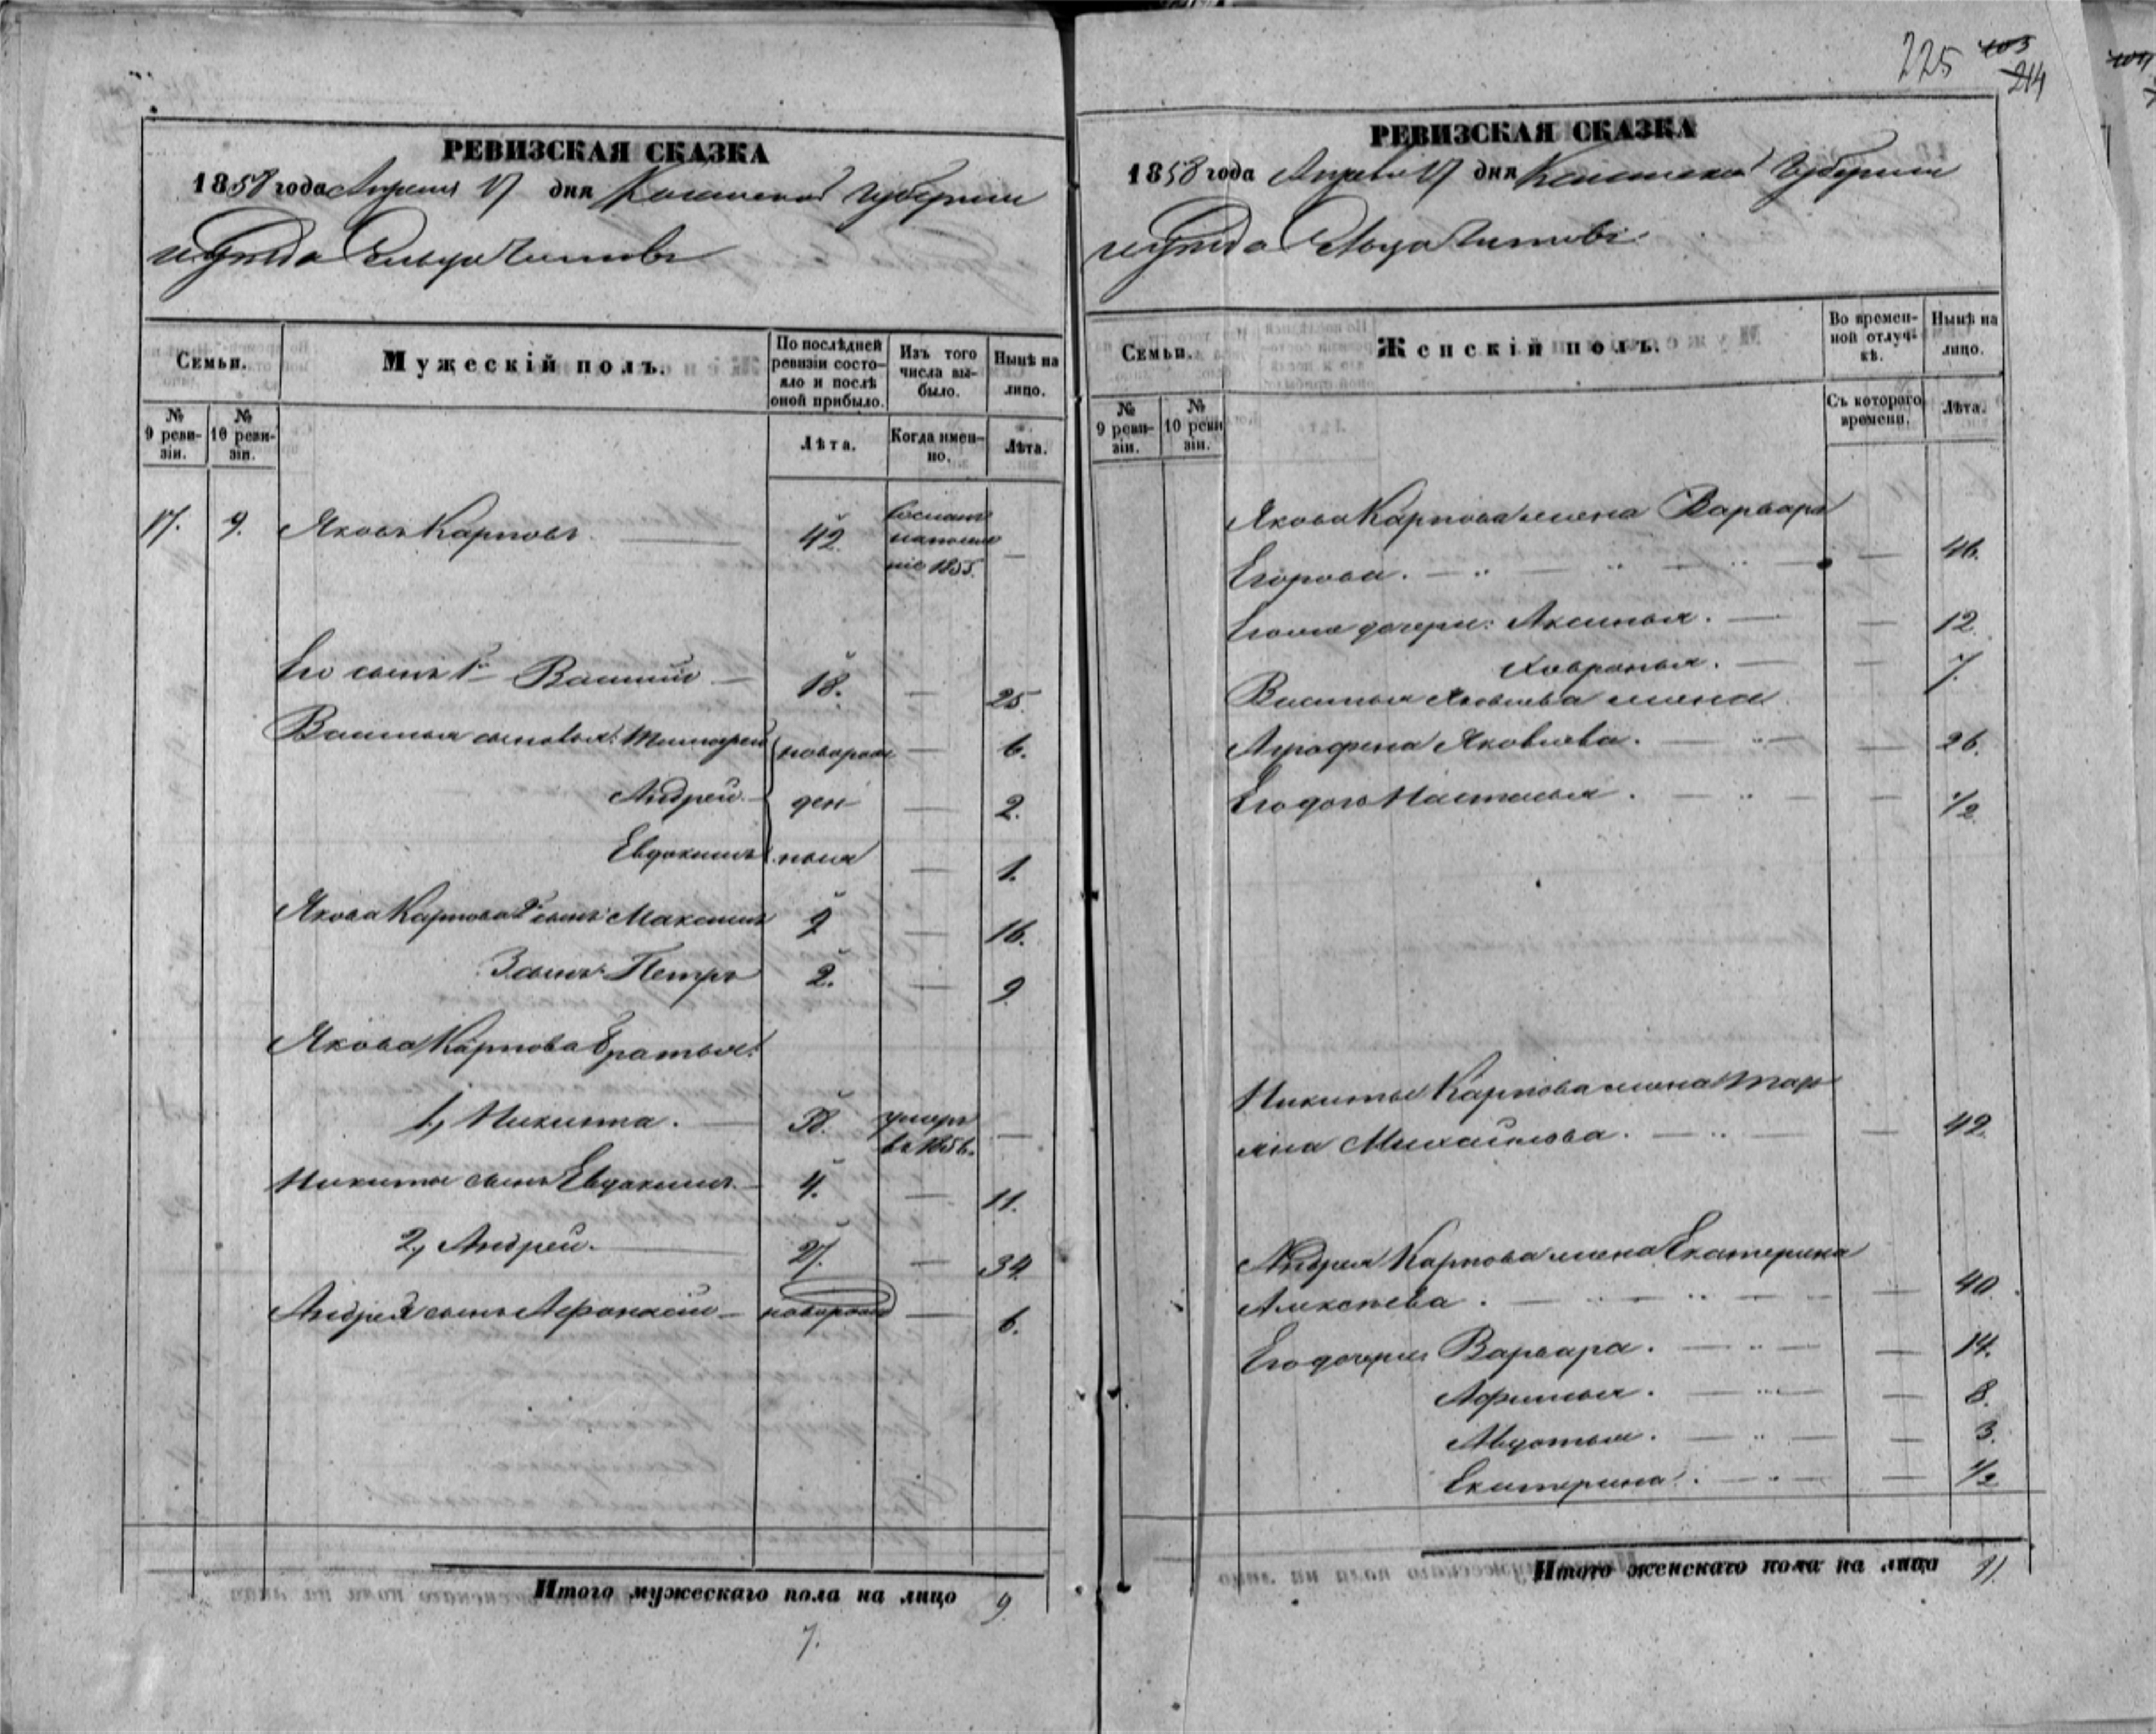 225 103
214
РЕВИЗСКАЯ СКАЗКА
1858 года Апреля 17 дня губернии
уезда
Семьи.
Мужескій полъ.
По послѣдней ревизіи состояло и послѣ оной прибыло.
Изъ того числа выбыло.
Нынѣ на лицо.
№ 9 ревизіи.
№ 10 ревизіи.
Лѣта.
Когда именно.
Лѣта.
17. 9. Яковъ Карповъ 42 1855. —
Его сынъ 1й Василій — 18. — 25
Василья сыновья: Тимофей новорож — 6.
Андрей — ден — 2.
Евдокимъ ныя — 1.
Якова Карпова 2й сынъ Максимъ 9 — 16.
3 сынъ Петръ 2. — 9
Якова Карпова братья:
1, Никита. — 38. умеръ въ 1856. —
Никиты сынъ Евдокимъ — 4. — 11.
2, Андрей. — 27. — 34
Андрея сынъ Афанасій — новорож — 6.
Итого мужескаго пола на лицо 9
7.
РЕВИЗСКАЯ СКАЗКА
1858 года Апреля 17 дня губернии
уезда
Семьи.
Женскій полъ.
Во временной отлучкѣ.
Нынѣ на лицо.
№ 9 ревизіи.
№ 10 ревизіи.
Съ котораго времени.
Лѣта.
Якова Карпова жена Варвара
Егорова. — 46.
дочери: Аксинья. — 12
Хавронья. — 7.
Василья Яковлева жена
Аграфена Яковлева. — 26.
Его дочь Настасья. — 1/2
Никиты Карпова жена Мар
Михайлова. — 42.
Андрея Карпова жена Екатерина
Алексеева. — 40.
Его дочери Варвара. — 14.
Афимья. — 8.
Авдотья. — 3.
Екатерина. — 1/2
Итого женскаго пола на лицо 11.